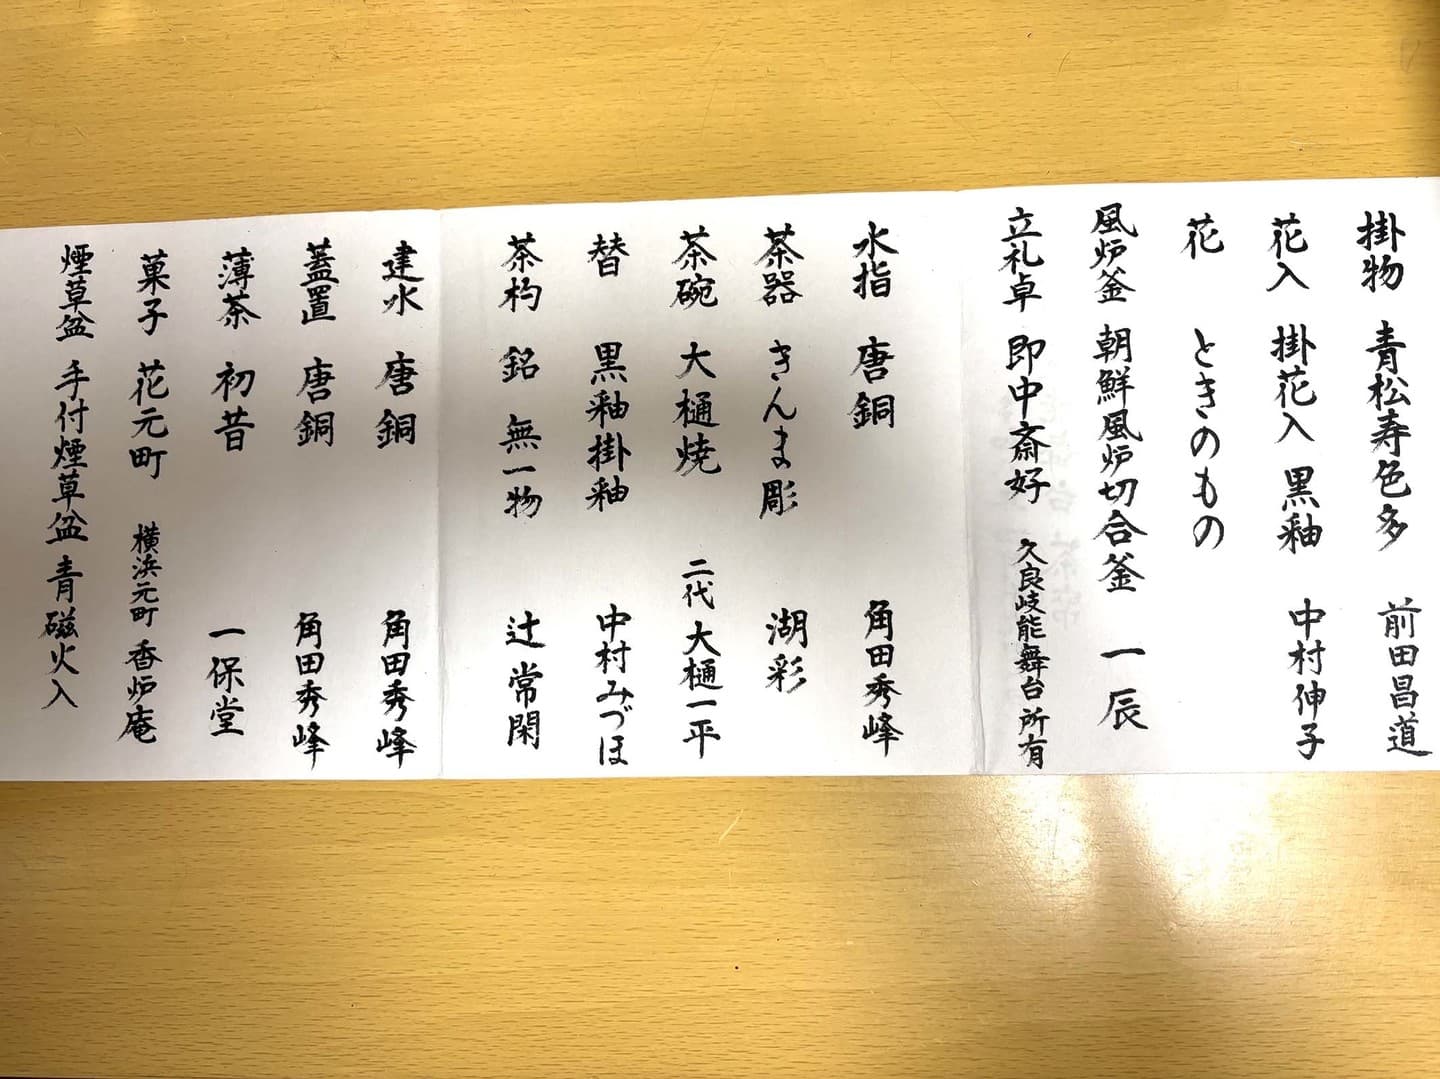 掛物 青松寿色多 前田昌道
花入 掛花入 黒釉 中村伸子
花 ときのもの
風炉釜 朝鮮風炉切合釜 一辰
立礼卓 即中斎好 久良岐能舞台所有
水指 唐銅 角田秀峰
茶器 きんま彫 湖彩
茶碗 大樋焼 二代 大樋一平
替 黒釉掛釉 中村みづほ
茶杓 銘 無一物 辻 常閑
建水 唐銅 角田秀峰
蓋置 唐銅 角田秀峰
薄茶 初昔 一保堂
菓子 花元町 横浜元町 香炉庵
煙草盆 手付煙草盆 青磁火入